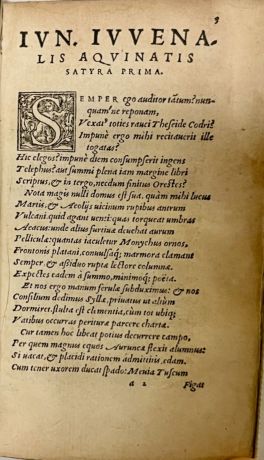 3
IVN. IVVENA-
LIS AQVINATIS
SATYRA PRIMA.
SEMPER ego auditor tātum? nun-
quam´ne reponam,
Vexat' toties rauci Theseide Codri?
Impunè ergo mihi recitauerit ille
togatas?
Hic elegos? impunè diem consumpserit ingens
Telephus? aut summi plena iam margine libri
Scriptus, & in tergo, necdum finitus Orestes?
Nota magis nulli domus est sua, quàm mihi lucus
Martis, & Aeolijs uicinum rupibus antrum
Vulcani. quid agant uenti: quas torqueat umbras
Aeacus: unde alius furtiuæ deuehat aurum
Pelliculæ: quantas iaculetur Monychus ornos,
Frontonis platani, conuulsaq; marmora clamant
Semper, & assiduo ruptæ lectore columnæ.
Expectes eadem à summo, minimoq; poëta.
Et nos ergo manum ferulæ subduximus: & nos
Consilium dedimus Syllæ, priuatus ut altum
Dormiret. stulta est clementia, cum tot ubiq;
Vatibus occurras perituræ parcere chartæ.
Cur tamen hoc libeat potius decurrere campo,
Per quem magnus equos Auruncæ flexit alumnus:
Si uacat, & placidi rationem admittitis, edam.
Cum tener uxorem ducat spado: Meuia Tuscum
a 2 Figat